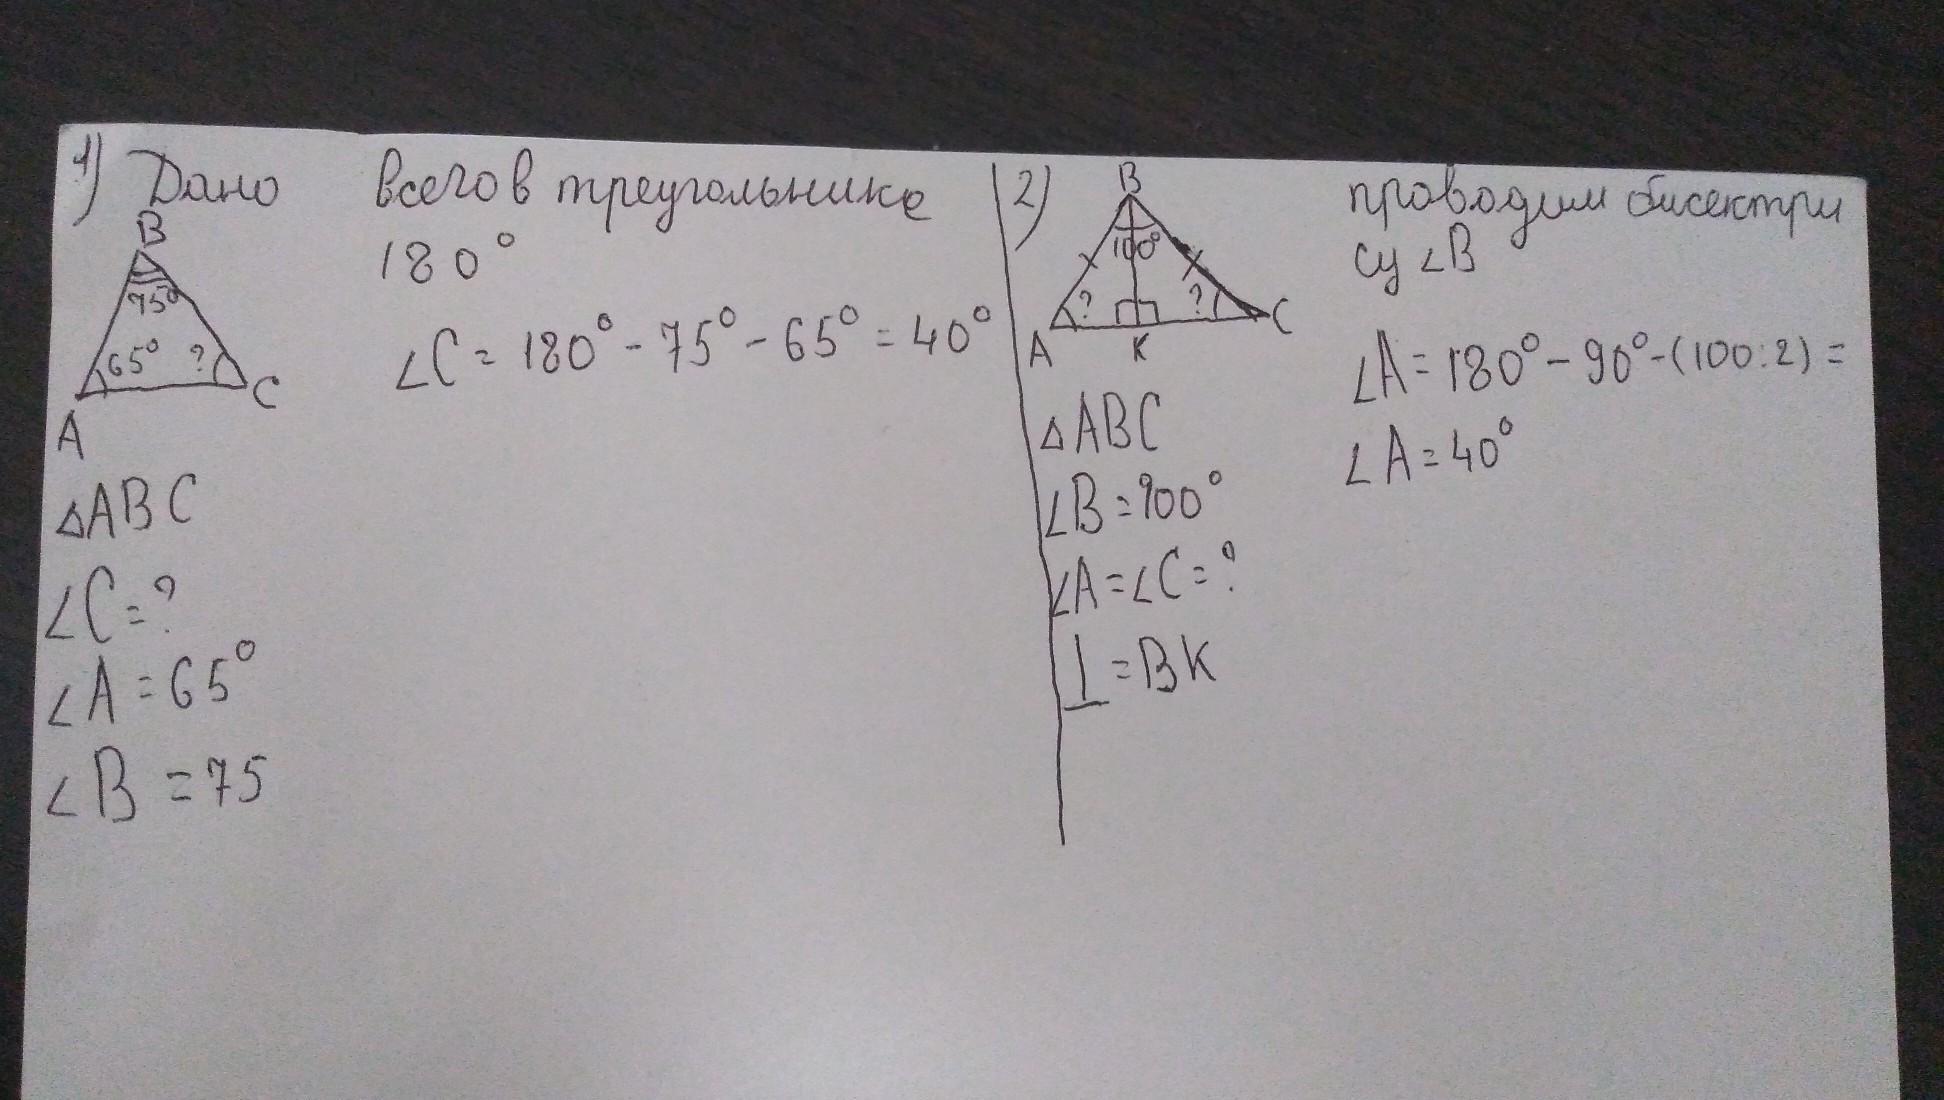 1) Дано
B
75°
65° ?
A C
△ABC
∠C=?
∠A=65°
∠B=75
всего в треугольнике
180°
∠C=180°-75°-65°=40°
2)
B
100°
? ?
A K C
△ABC
∠B=100°
∠A=∠C=?
⊥=BK
проводим бисектри
су ∠B
∠A=180°-90°-(100:2)=
∠A=40°